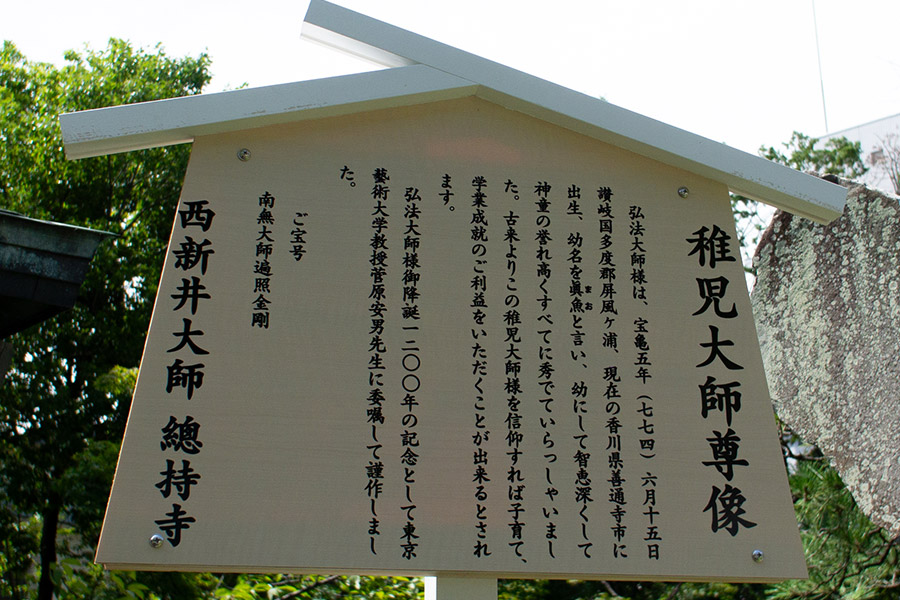 稚児大師尊像
弘法大師様は、宝亀五年（七七四）六月十五日
讃岐国多度郡屏風ヶ浦、現在の香川県善通寺市に
出生、幼名を眞魚と言い、幼にして智恵深くして
まお
神童の誉れ高くすべてに秀でていらっしゃいまし
た。古来よりこの稚児大師様を信仰すれば子育て、
学業成就のご利益をいただくことが出来るとされ
ます。
弘法大師様御降誕一二〇〇年の記念として東京
藝術大学教授菅原安男先生に委嘱して謹作しまし
た。
ご宝号
南無大師遍照金剛
西新井大師 總持寺